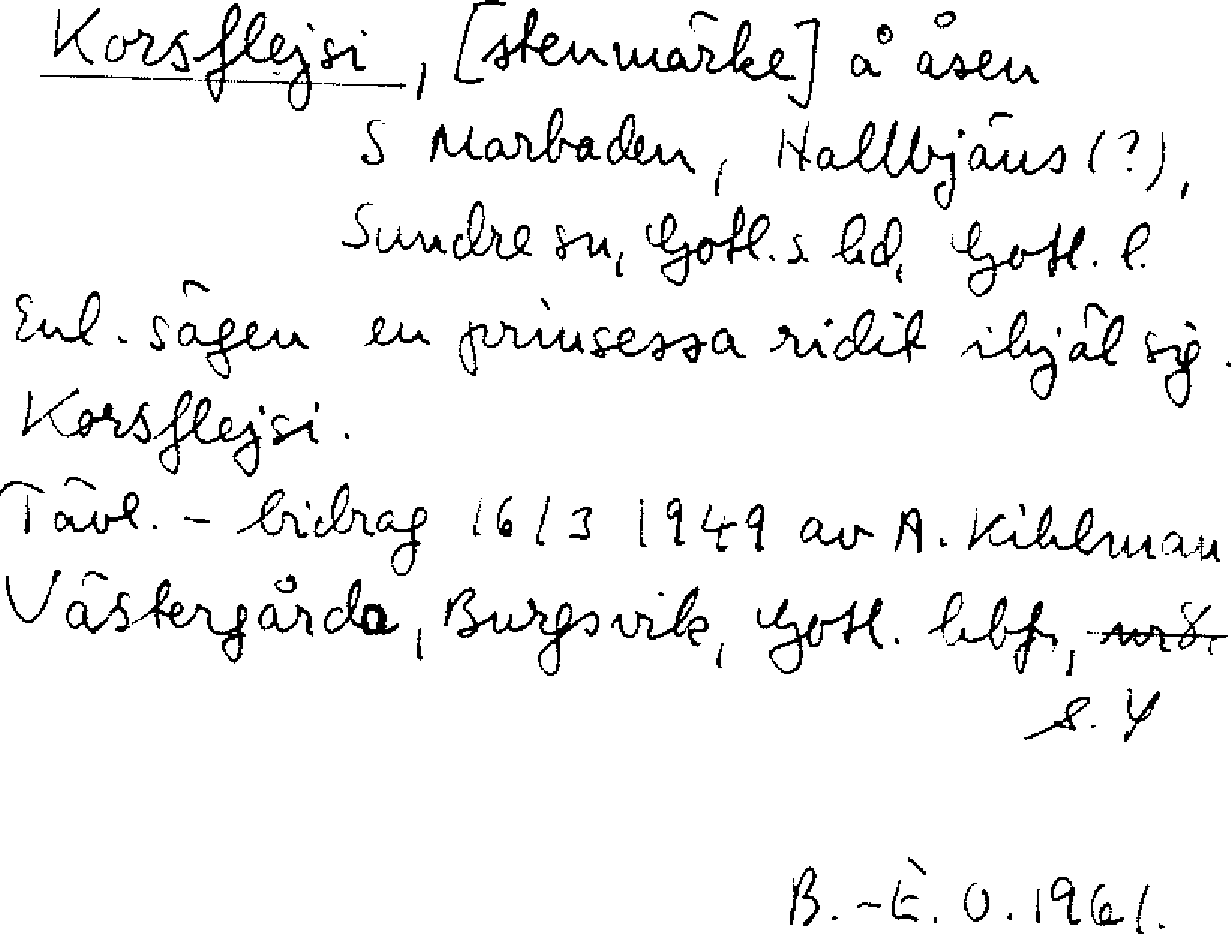 Korsflejsi, [stenmärke] å åsen
S Marbaden, Hallbjäns (?),
Sundre sn, Gotl. s hd, Gotl. l.
Enl. sägen en prinsessa ridit ihjäl sig.
Korsflejsi.
Tävl. - bidrag 16/3 1949 av A. Kihlman
Västergårda, Burgsvik, Gotl. hbf.,
s. 4
B.-E. O. 1961.